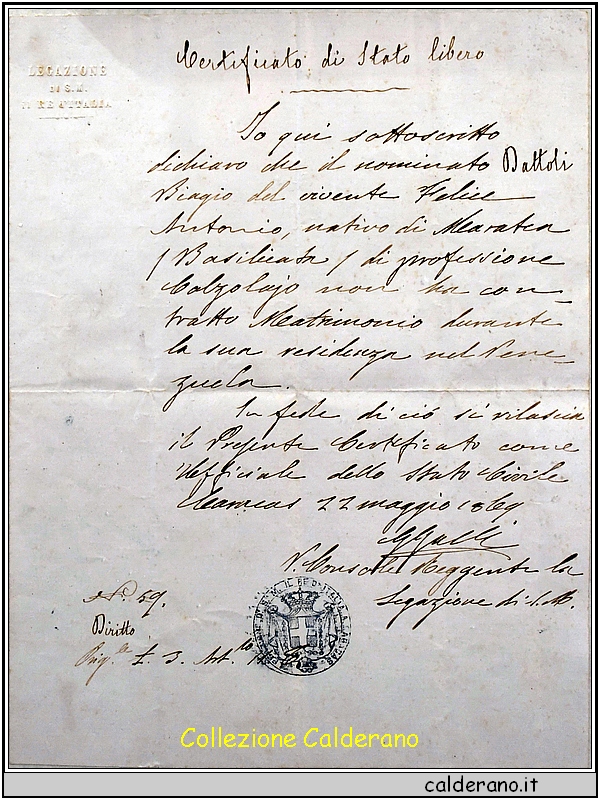 Certificato di Stato libero
LEGAZIONE
DI S.M.
IL RE D'ITALIA
Io qui sottoscritto
dichiaro che il nominato Battoli
Biagio del vivente Felice
Antonio, nativo di Maratea
/ Basilicata / di professione
Calzolajo non ha con-
tratto Matrimonio durante
la sua residenza nel Vene-
zuela.
In fede di ciò si rilascia
il Presente Certificato come
Uffiziale dello Stato Civile
Caracas 22 maggio 1869
GGalli
V. Console Reggente la
Legazione di S.M.
No. 59.
Diritto
L. 3. Art.
DI S.M. IL RE D'ITALIA A CARACAS
Collezione Calderano
calderano.it